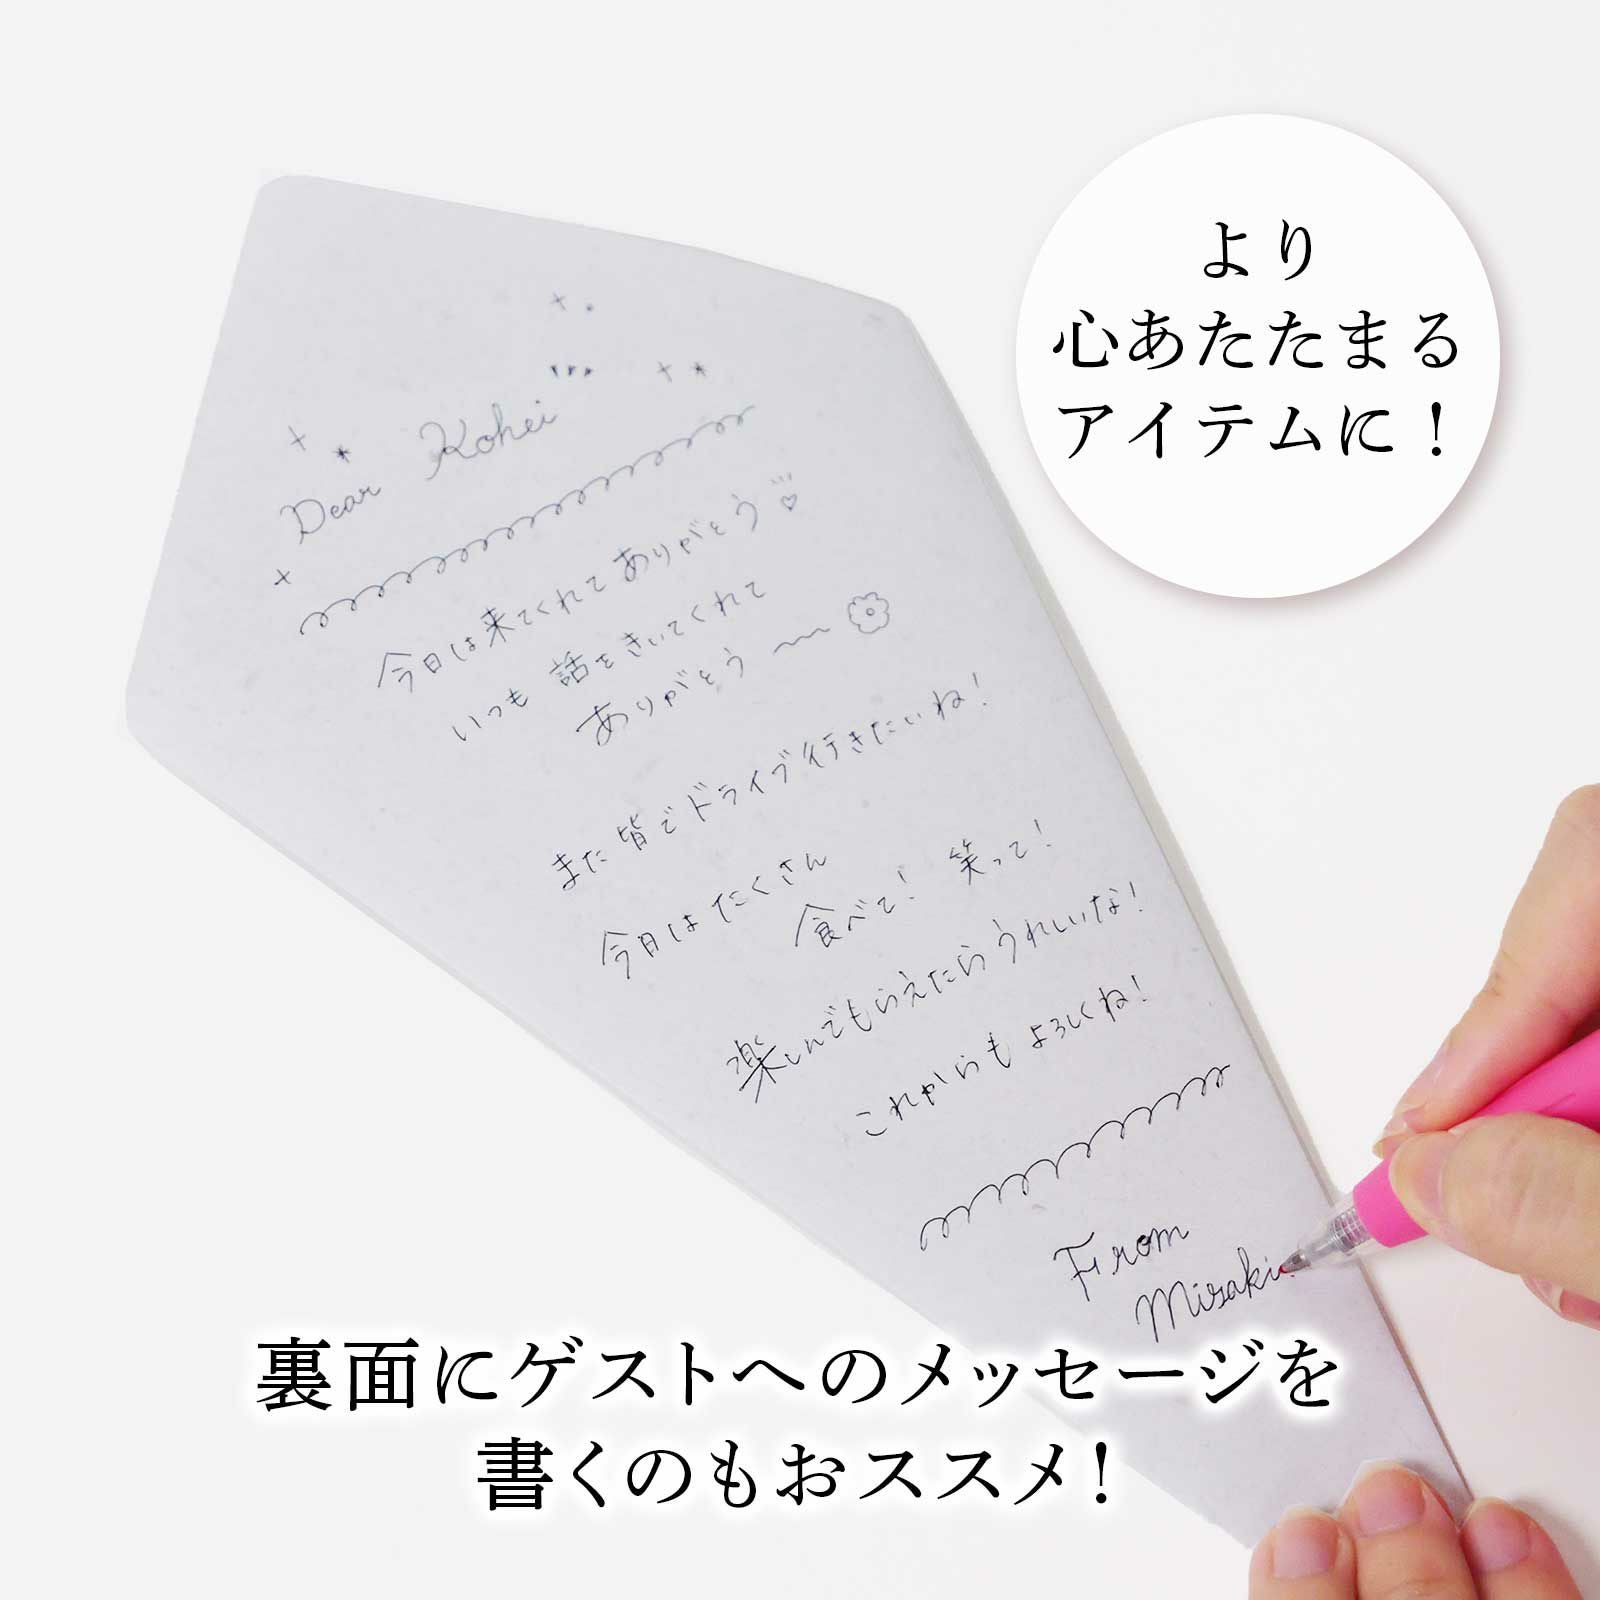 より
心あたたまる
アイテムに！
Dear Kohei
今日は来てくれてありがとう♡
いつも 話をきいてくれて
ありがとう〜
また皆でドライブ行きたいね！
今日はたくさん
食べて！ 笑って！
楽しんでもらえたらうれしいな！
これからもよろしくね！
From
Misaki.
裏面にゲストへのメッセージを
書くのもおススメ！